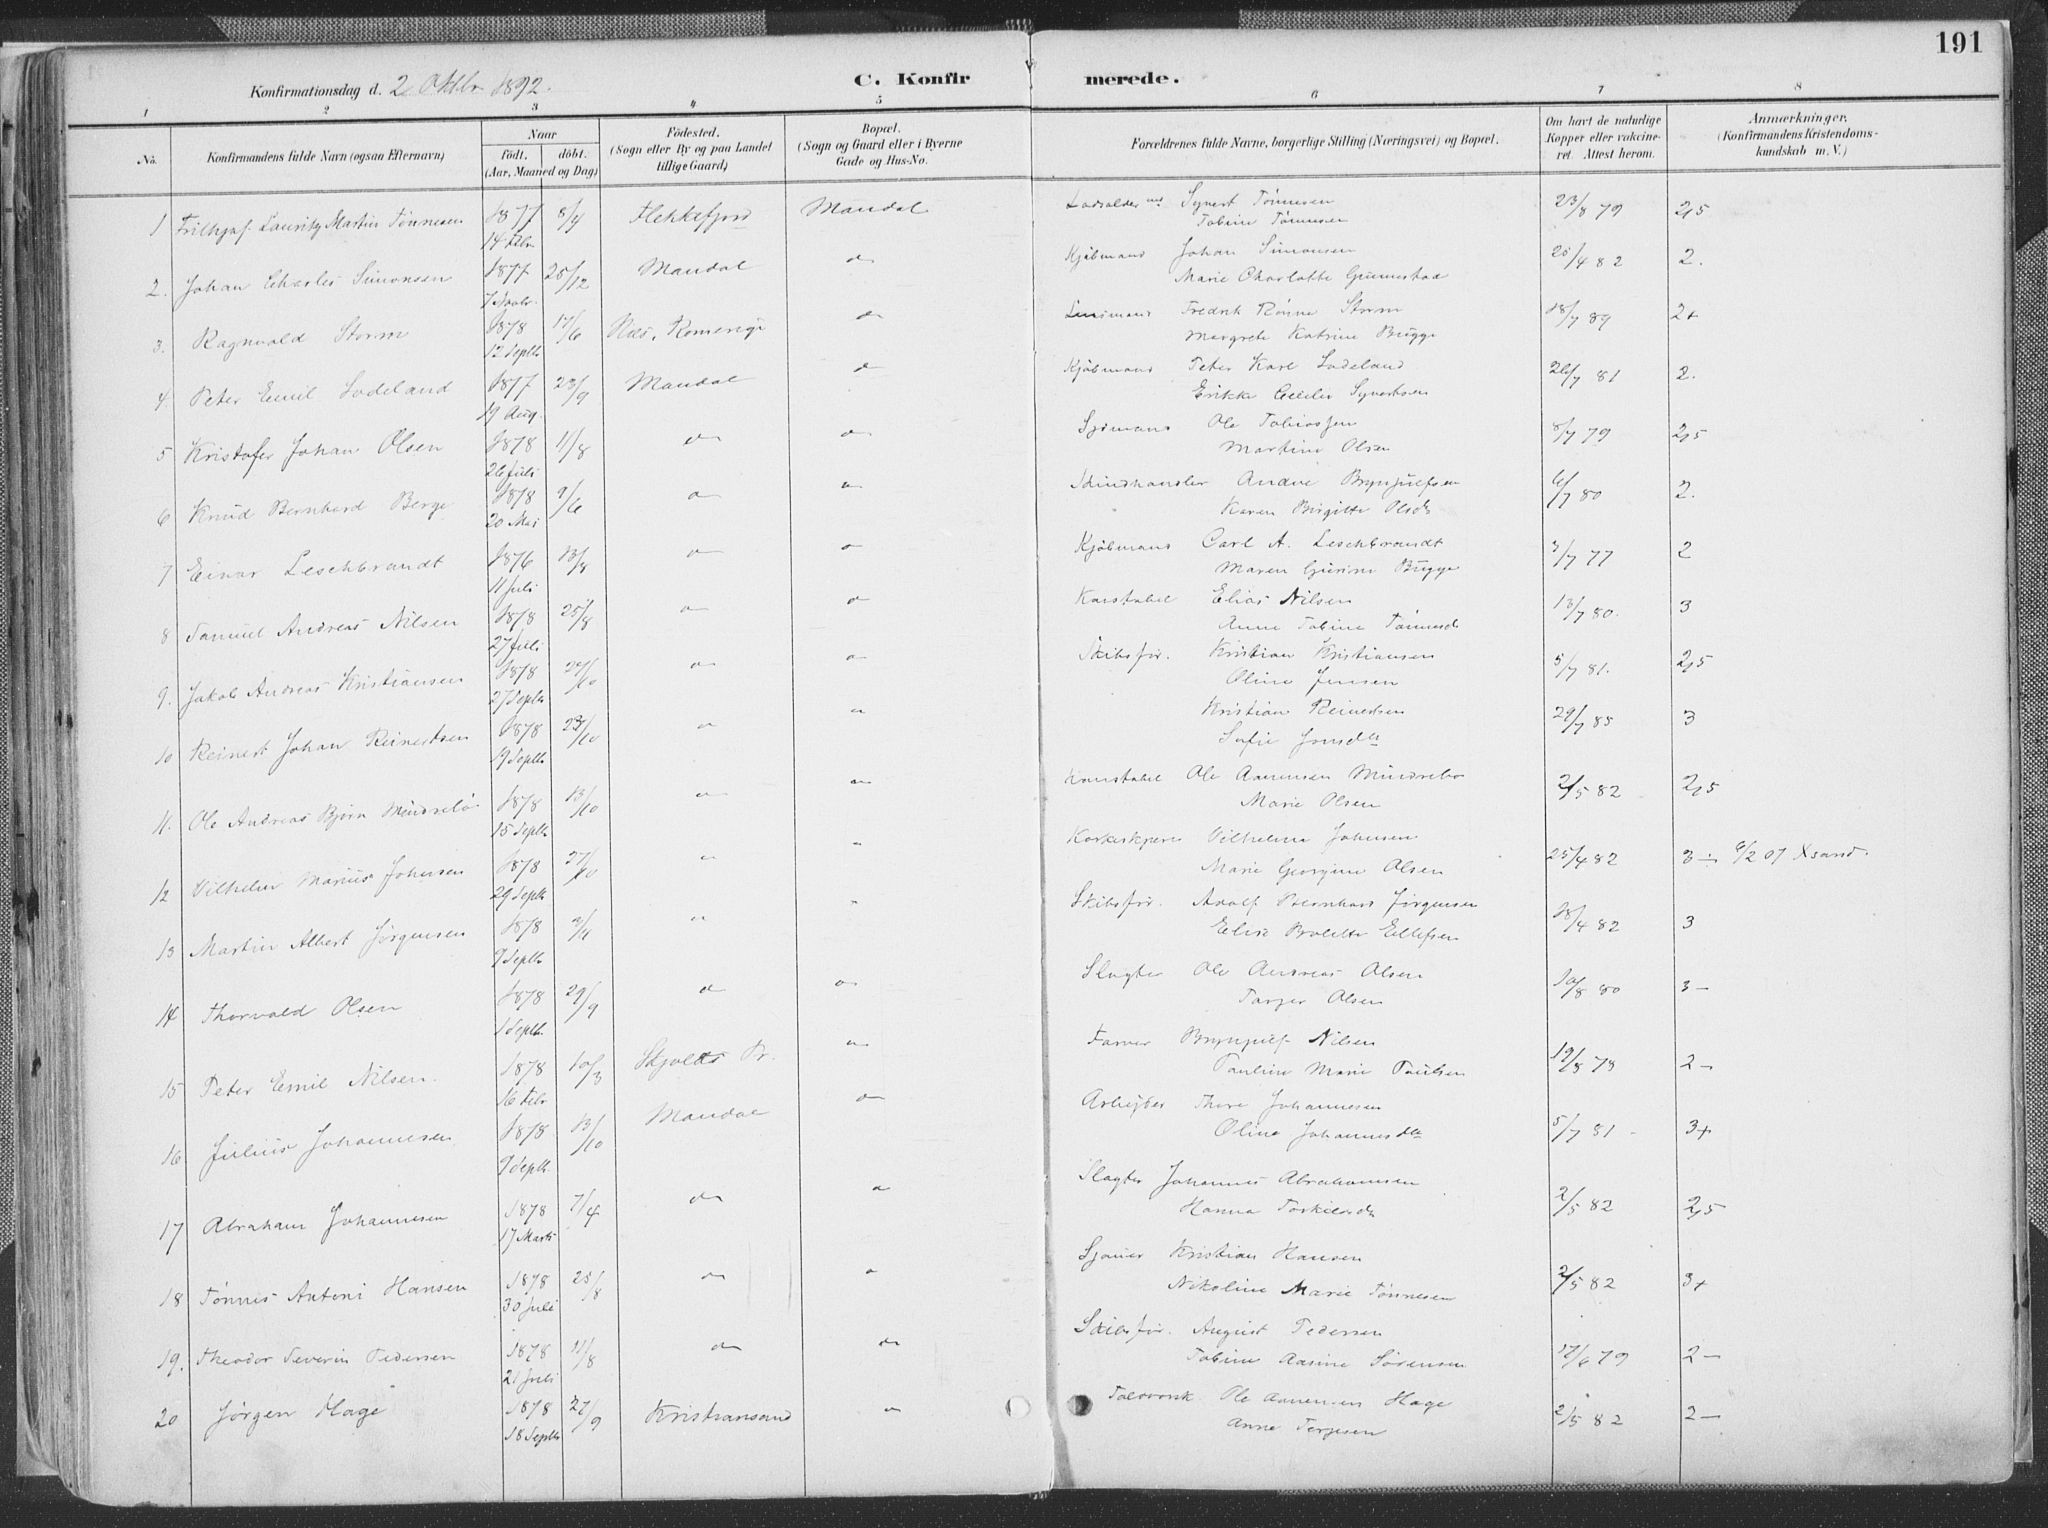 191
Konfirmationsdag d. 2 Oktbr 1892.
C. Konfirmerede.
1 2 3 4 5 6 7 8
No. Konfirmandens fulde Navn (ogsaa Efternavn) Naar født. døbt. (Aar, Maaned og Dag) Fødested. (Sogn eller By og paa Landet tillige Gaard) Bopæl. (Sogn og Gaard eller i Byerne Gade og Hus-No. Forældrenes fulde Navne, borgerlige Stilling (Næringsvei) og Bopæl. Om havt de naturlige Kopper eller vakcineret. Attest herom. Anmærkninger, (Konfirmandens Kristendomskundskab m. V.)
1 Frithjof Lauritz Martin Tønnesen 1877 14 Febr. 8/4 Flekkefjord Mandal Syvert Tønnesen 23/8 79 2,5
Tobine Tønnesen
2. Johan Charles Simonsen 1877 7 Novbr. 25/12 Mandal do Kjøbmand Johan Simonsen 25/4 82 2.
Marie Charlotte Gunnestad
3. Ragnvald Storm 1878 12 Septb 17/6 Næs, Romerige do Lensmand Fredrik Rønne Storm 18/7 89 2+
Margrete Katrine Bugge
4. Peter Emil Lodeland 1877 19 Aug. 23/9 Mandal do Kjøbmand Peter Karl Lodeland 26/7 81 2.
Erikke Cecilie Syvertsen
5 Kristofer Johan Olsen 1878 26 Juli 11/8 do do Sjømand Ole Tobiassen 8/7 79 2,5
Martine Olsen
6 Knud Bernhard Berge 1878 20 Mai 9/6 do do Skindhandler Andre Brynjulfsen 6/7 80 2.
Karen Birgitte Olsd
7 Einar Leschbrandt 1876 11 Juli 13/8 do do Kjøbmand Carl A. Leschbrandt 3/7 77 2
Maren Gurine Bugge
8 Samuel Andreas Nilsen 1878 27 Juli 25/8 do do Konstabel Elias Nilsen 13/7 80. 3
Anne Tobine Tønnesd
9. Jakob Andreas Kristiansen 1878 27 Septb /10 do do Skibsfør. Kristian Kristiansen 5/7 81. 2,5
Oline Jensen
10 Reinert Johan Reinertsen 1878 19 Septb 23/10 do do Kristian Reinertsen 29/7 85 3
Sofie Jensdtr
11. Ole Andreas Bjørn Mindrebø 1878 15 Septb 13/10 do do Konstabel Ole Aanensen Mindrebø 2/5 82 2,5
Marie Olsen
12 Vilhelm Marius Johnsen 1878 29 Septb 27/10 do do Vilhelm Johnsen 25/4 82 3 ÷ 6/2 07 Xsand.
Marie Georgine Olsen
13 Martin Albert Jørgensen 1878 9 Septb do do Skibsfør. Adolf Bernhard Jørgensen 18/4 82 3
Elise Bolette Ellefsen
14 Thorvald Olsen 1878 1 Septb. 29/9 do do Slagter Ole Andreas Olsen 10/8 80 3 –
Olsen
15 Peter Emil Nilsen. 1878 16 Febr 10/3 Skjolds Pr. do Farver Brynjulf Nilsen 19/8 78 2 –
Pauline Marie Paulsen
16 Julius Johannesen 1878 9 Septb. 13/10 Mandal do Arbejder Thore Johannesen 5/7 81 – 3+
Oline Johannesdtr
17 Abraham Johannesen 1878 17 Marts 7/4 do do Slagter Johannes Abrahamsen 2/5 82 2,5
Hanna Torkelsd
18 Tønnes Antoni Hansen 1878 30 Juli 25/8 do do Sjøuer Kristian Hansen 2/5 82 3+
Nikoline Marie Tønnesen
19. Theodor Severin Pedersen 1878 21 Juli 11/8 do do Skibsfør. August Pedersen 17/6 79 2 –
Tobine Aasine Sørensen
20 Jørgen Hage 1878 18 Septb 27/9 Kristiansand do Ole Aanensen Hage 2/5 82 2 –
Anne Terjesen